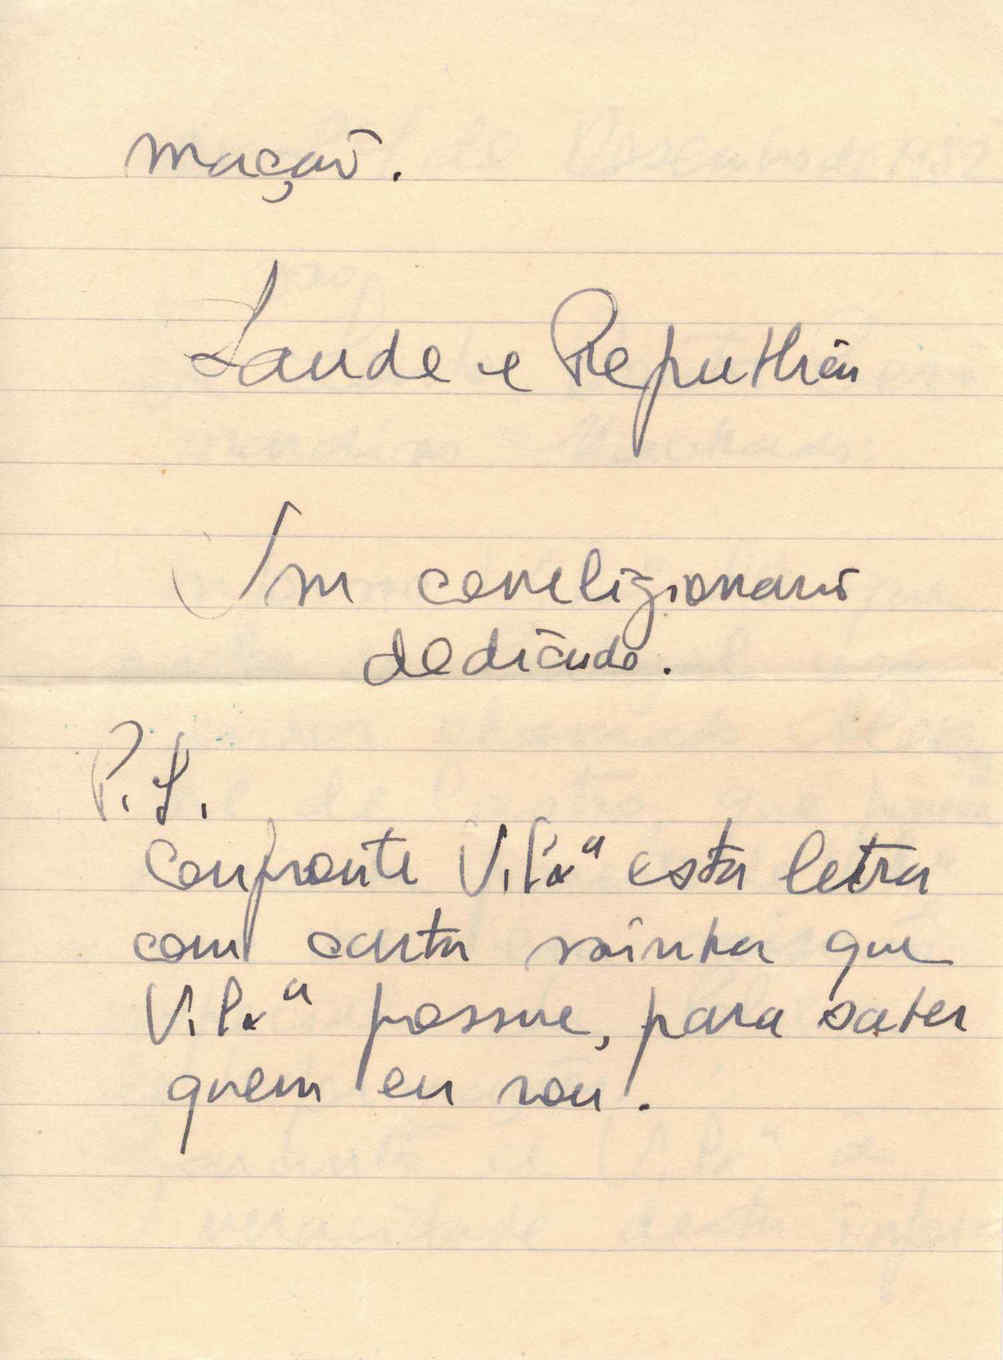 mação.
Saude e Republica
Um correligionario
dedicado.
P.S.
Confronte V. Exª esta letra
com carta minha que
V. Exª possue, para saber
quem eu sou.